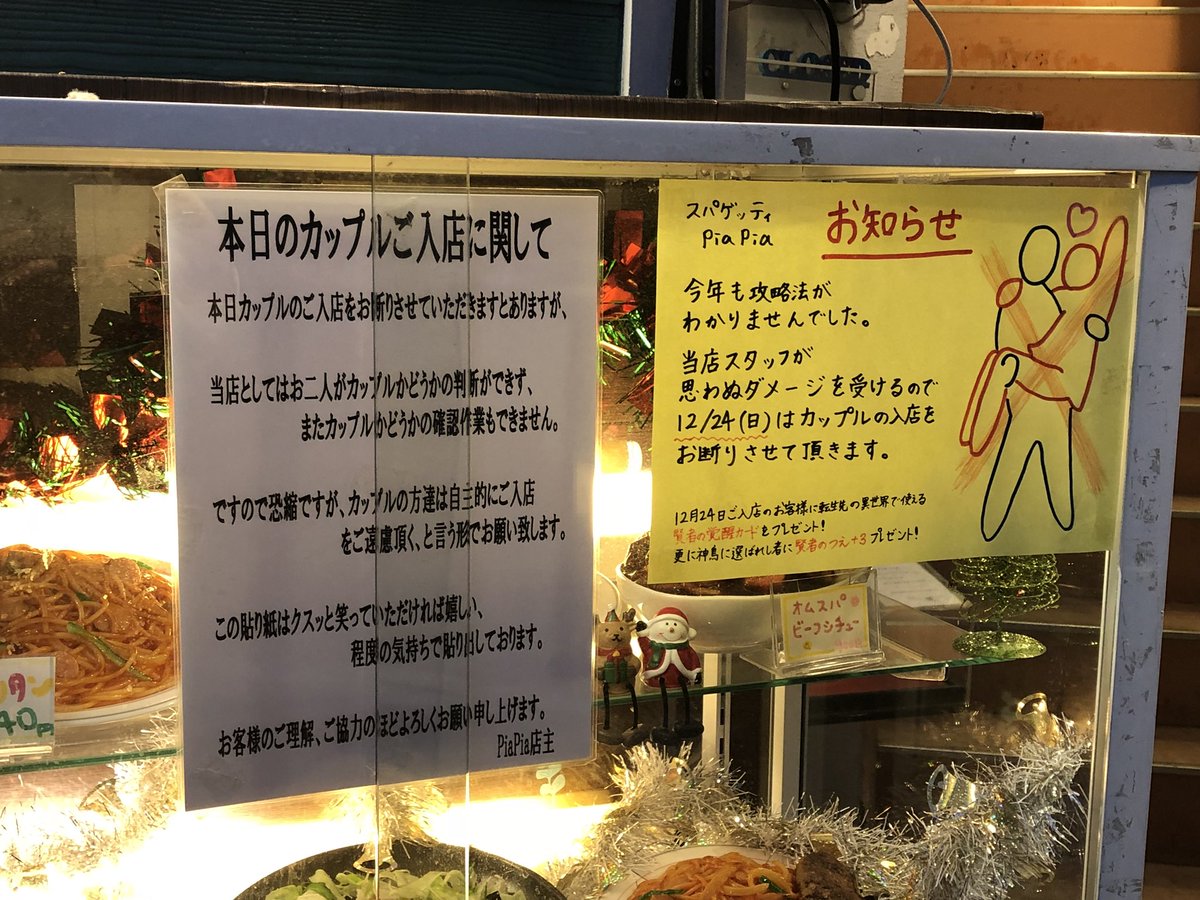 本日のカップルご入店に関して
本日カップルのご入店をお断りさせていただきますとありますが、
当店としてはお二人がカップルかどうかの判断ができず、
またカップルかどうかの確認作業もできません。
ですので恐縮ですが、カップルの方達は自主的にご入店
をご遠慮頂く、と言う形でお願い致します。
この貼り紙はクスッと笑っていただければ嬉しい、
程度の気持ちで貼り出しております。
お客様のご理解、ご協力のほどよろしくお願い申し上げます。
PiaPia店主
スパゲッティ
PiaPia
お知らせ
今年も攻略法が
わかりませんでした。
当店スタッフが
思わぬダメージを受けるので
12/24(日)はカップルの入店を
お断りさせて頂きます。
12月24日ご入店のお客様に転生先の異世界で使える
賢者の覚醒カードをプレゼント!
更に神鳥に選ばれし者に賢者のつえ+3プレゼント!
オムスパ
ビーフシチュー
タン
40円